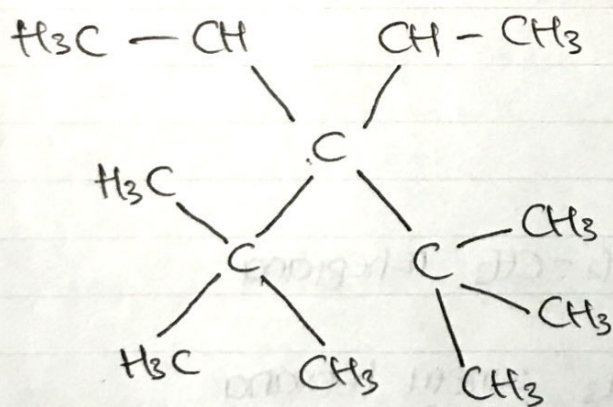 H3C - CH CH - CH3
C
H3C
C C CH3
CH3
H3C CH3 CH3